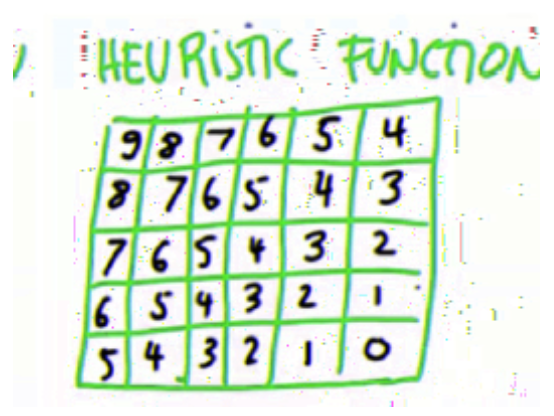 HEURISTIC FUNCTION
9 8 7 6 5 4
8 7 6 5 4 3
7 6 5 4 3 2
6 5 4 3 2 1
5 4 3 2 1 0